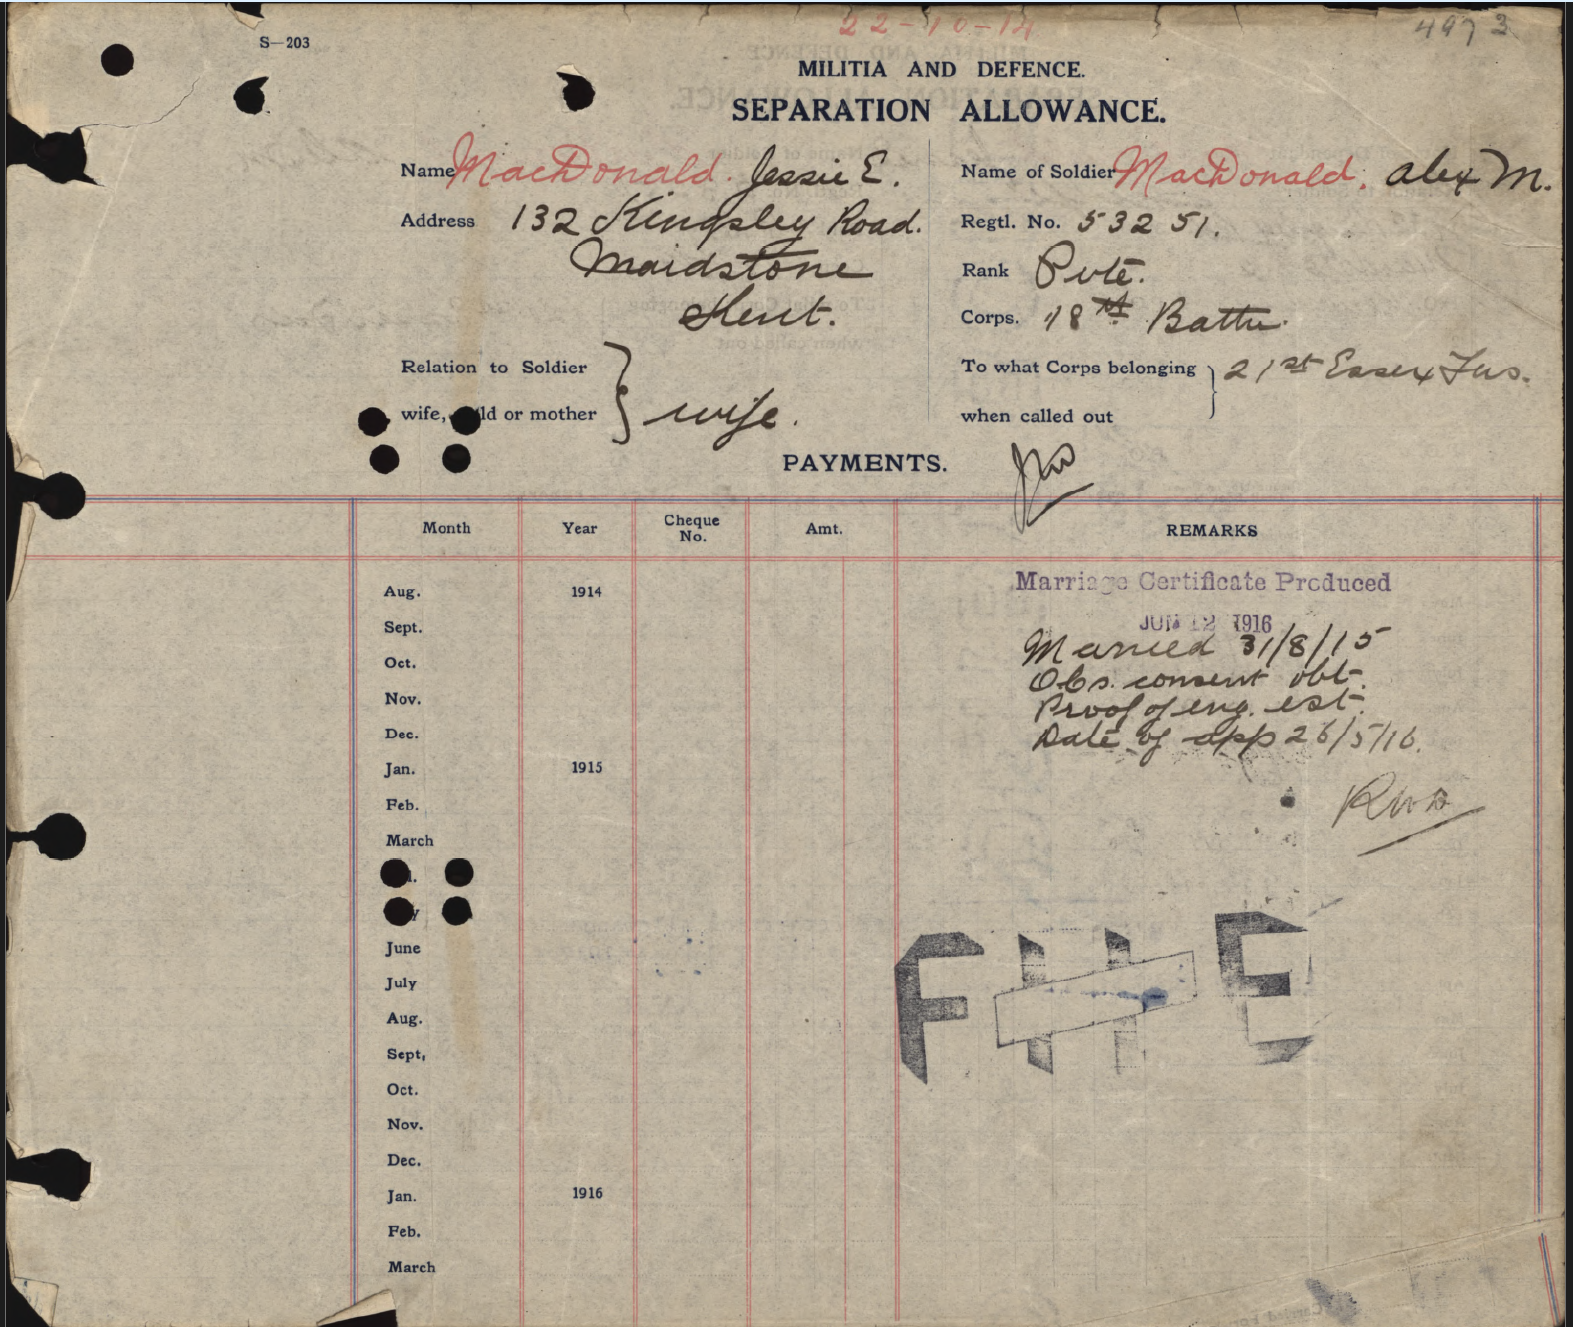 22-10-14
4973
S—203
MILITIA AND DEFENCE.
SEPARATION ALLOWANCE.
Name MacDonald. Jessie E.
Address 132 Kingsley Road.
Maidstone
Kent.
Relation to Soldier
wife, ld or mother } wife.
Name of Soldier MacDonald, Alex M.
Regtl. No. 53251.
Rank Pvte.
Corps. 18th Battn.
To what Corps belonging
when called out } 21st Essex Fus.
PAYMENTS.
Month Year Cheque No. Amt. REMARKS
Aug. 1914
Sept.
Oct.
Nov.
Dec.
Jan. 1915
Feb.
March
June
July
Aug.
Sept,
Oct.
Nov.
Dec.
Jan. 1916
Feb.
March
Marriage Certificate Produced
JUN 12 1916
Married 31/8/15
Obs. consent obt.
Proof of eng. est.
Date of app 26/5/16.